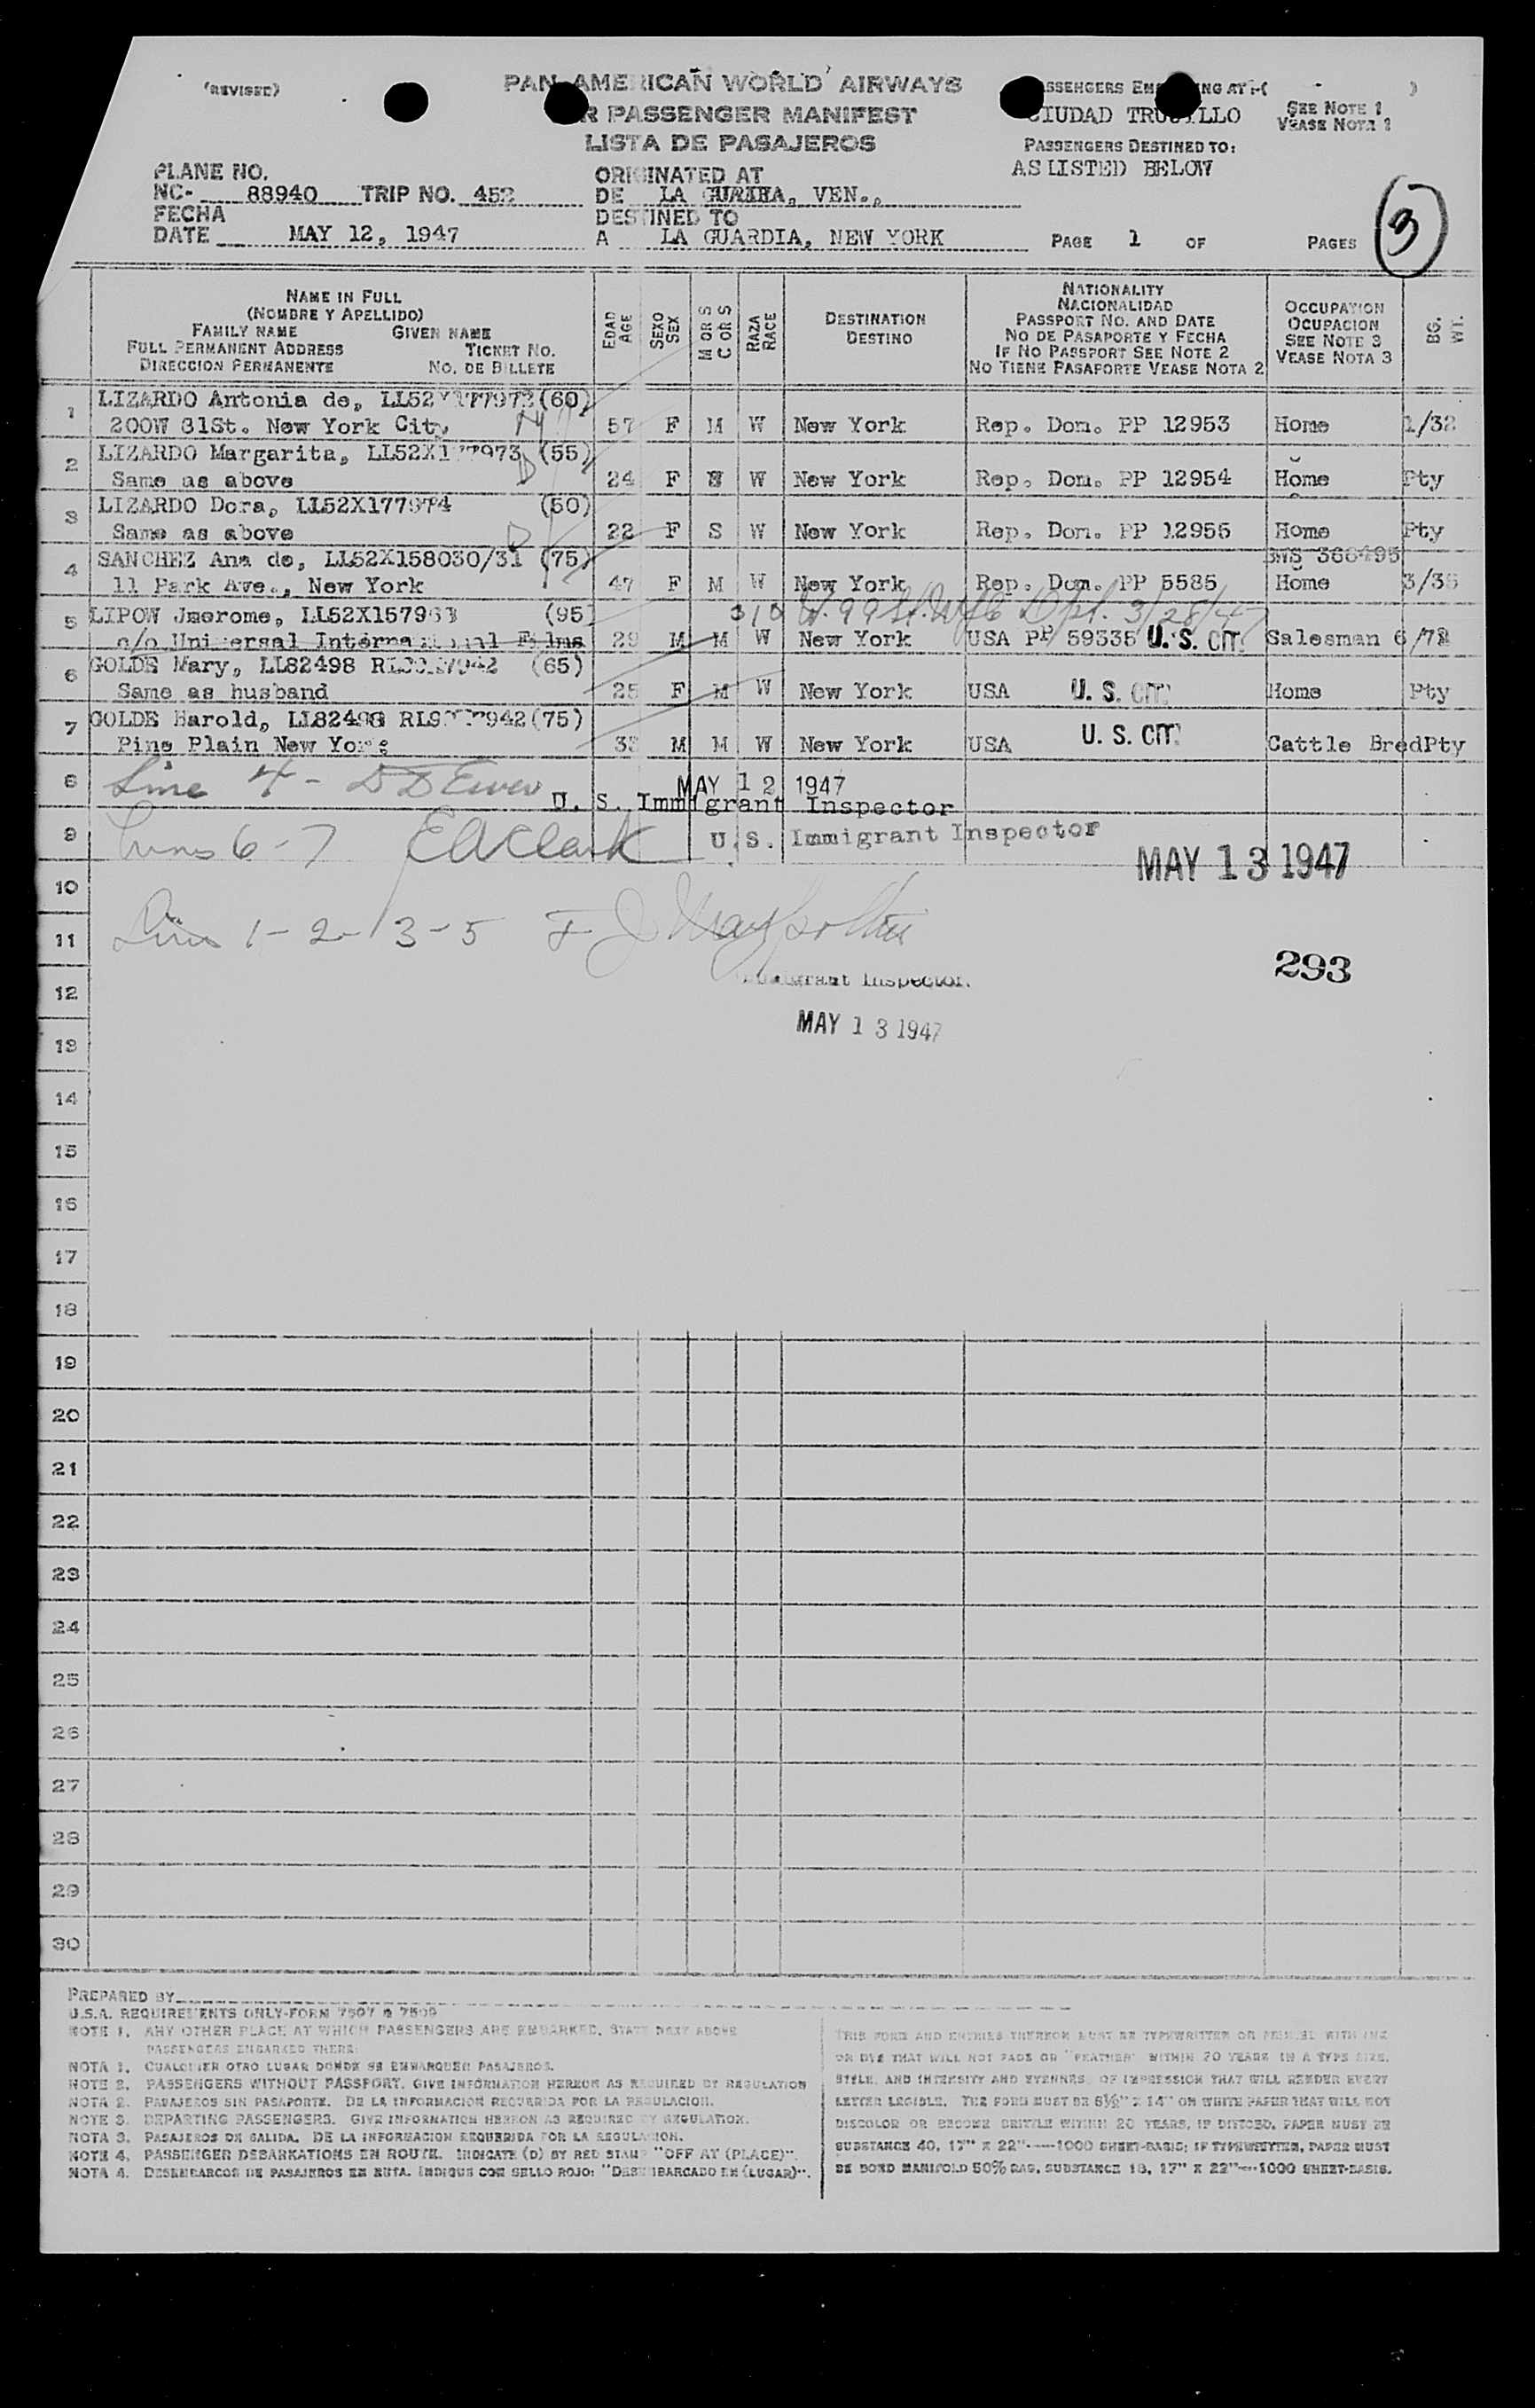 (REVISED)
PAN AMERICAN WORLD AIRWAYS
R PASSENGER MANIFEST
LISTA DE PASAJEROS
SSENGERS EM NG AT
CIUDAD TRU LLO
SEE NOTE 1
VEASE NOTA 1
PASSENGERS DESTINED TO:
AS LISTED BELOW
PLANE NO.
NC- 88940 TRIP NO. 452
FECHA
DATE MAY 12, 1947
ORIGINATED AT
DE LA GUAIRA, VEN.,
DESTINED TO
A LA GUARDIA, NEW YORK
PAGE 1 OF PAGES
3
NAME IN FULL
(NOMBRE Y APELLIDO)
FAMILY NAME GIVEN NAME
FULL PERMANENT ADDRESS TICKET NO.
DIRECCION PERMANENTE NO. DE BILLETE
EDAD
AGE
SEXO
SEX
M OR S
C OR S
RAZA
RACE
DESTINATION
DESTINO
NATIONALITY
NACIONALIDAD
PASSPORT NO. AND DATE
NO DE PASAPORTE Y FECHA
IF NO PASSPORT SEE NOTE 2
NO TIENE PASAPORTE VEASE NOTA 2
OCCUPATION
OCUPACION
SEE NOTE 3
VEASE NOTA 3
BG.
WT.
1 LIZARDO Antonia de, (60)
200W 81St. New York City 57 F M W New York Rep. Dom. PP 12953 Home 1/32
2 LIZARDO Margarita, (55)
Same as above 24 F W New York Rep. Dom. PP 12954 Home Pty
3 LIZARDO Dora, LL52X177974 (50)
Same as above 22 F S W New York Rep. Dom. PP 12955 Home Pty
4 SANCHEZ Ana de, LL52X158030/31 (75)
11 Park Ave., New York 47 F M W New York Rep. Dom. PP 5585 Home
5 LIPOW Jmerome, (95)
310 W. 99 St. 3/28/47
c/o Universal International Films 29 M M W New York USA PP 59335 U. S. CIT. Salesman
6 GOLDE Mary, LL82498 (65)
Same as husband 25 F M W New York USA U. S. CIT. Home Pty
7 GOLDE Harold, LL82498 (75)
Pine Plain New York 33 M M W New York USA U. S. CIT. Cattle Bred Pty
8 Line 4 - MAY 12 1947
U. S. Immigrant Inspector
9 Lines 6-7 EA Clark U. S. Immigrant Inspector
MAY 13 1947
10
11 Lines 1-2-3-5
293
12 Immigrant Inspector.
MAY 13 1947
13
14
15
16
17
18
19
20
21
22
23
24
25
26
27
28
29
30
PREPARED BY
U.S.A. REQUIREMENTS ONLY-FORM 7507 & 7509
NOTE 1. ANY OTHER PLACE AT WHICH PASSENGERS ARE EMBARKED, STATE NEXT ABOVE
PASSENGERS EMBARKED THERE.
NOTA 1. CUALQUIER OTRO LUGAR DONDE SE EMBARQUEN PASAJEROS.
NOTE 2. PASSENGERS WITHOUT PASSPORT. GIVE INFORMATION HEREON AS REQUIRED BY REGULATION
NOTA 2. PASAJEROS SIN PASAPORTE. DE LA INFORMACION REQUERIDA POR LA REGULACION.
NOTE 3. DEPARTING PASSENGERS. GIVE INFORMATION HEREON AS REQUIRED BY REGULATION.
NOTA 3. PASAJEROS DE SALIDA. DE LA INFORMACION REQUERIDA POR LA REGULACION.
NOTE 4. PASSENGER DEBARKATIONS EN ROUTE. INDICATE (D) BY RED STAMP "OFF AT (PLACE)".
NOTA 4. DESEMBARCOS DE PASAJEROS EN RUTA. INDIQUE CON SELLO ROJO: "DESEMBARCADO EN (LUGAR)".
THIS FORM AND ENTRIES THEREON MUST BE TYPEWRITTEN OR PENCIL WITH INK
OR DYE THAT WILL NOT FADE OR "FEATHER" WITHIN 20 YEARS IN A TYPE SIZE,
STYLE, AND INTENSITY AND EVENNESS OF IMPRESSION THAT WILL RENDER EVERY
LETTER LEGIBLE. THE FORM MUST BE 8½" X 14" ON WHITE PAPER THAT WILL NOT
DISCOLOR OR BECOME BRITTLE WITHIN 20 YEARS. IF DITTOED, PAPER MUST BE
SUBSTANCE 40, 17" X 22"----1000 SHEET-BASIS; IF TYPEWRITTEN, PAPER MUST
BE BOND MANIFOLD 50% RAG, SUBSTANCE 18, 17" X 22"---1000 SHEET-BASIS.